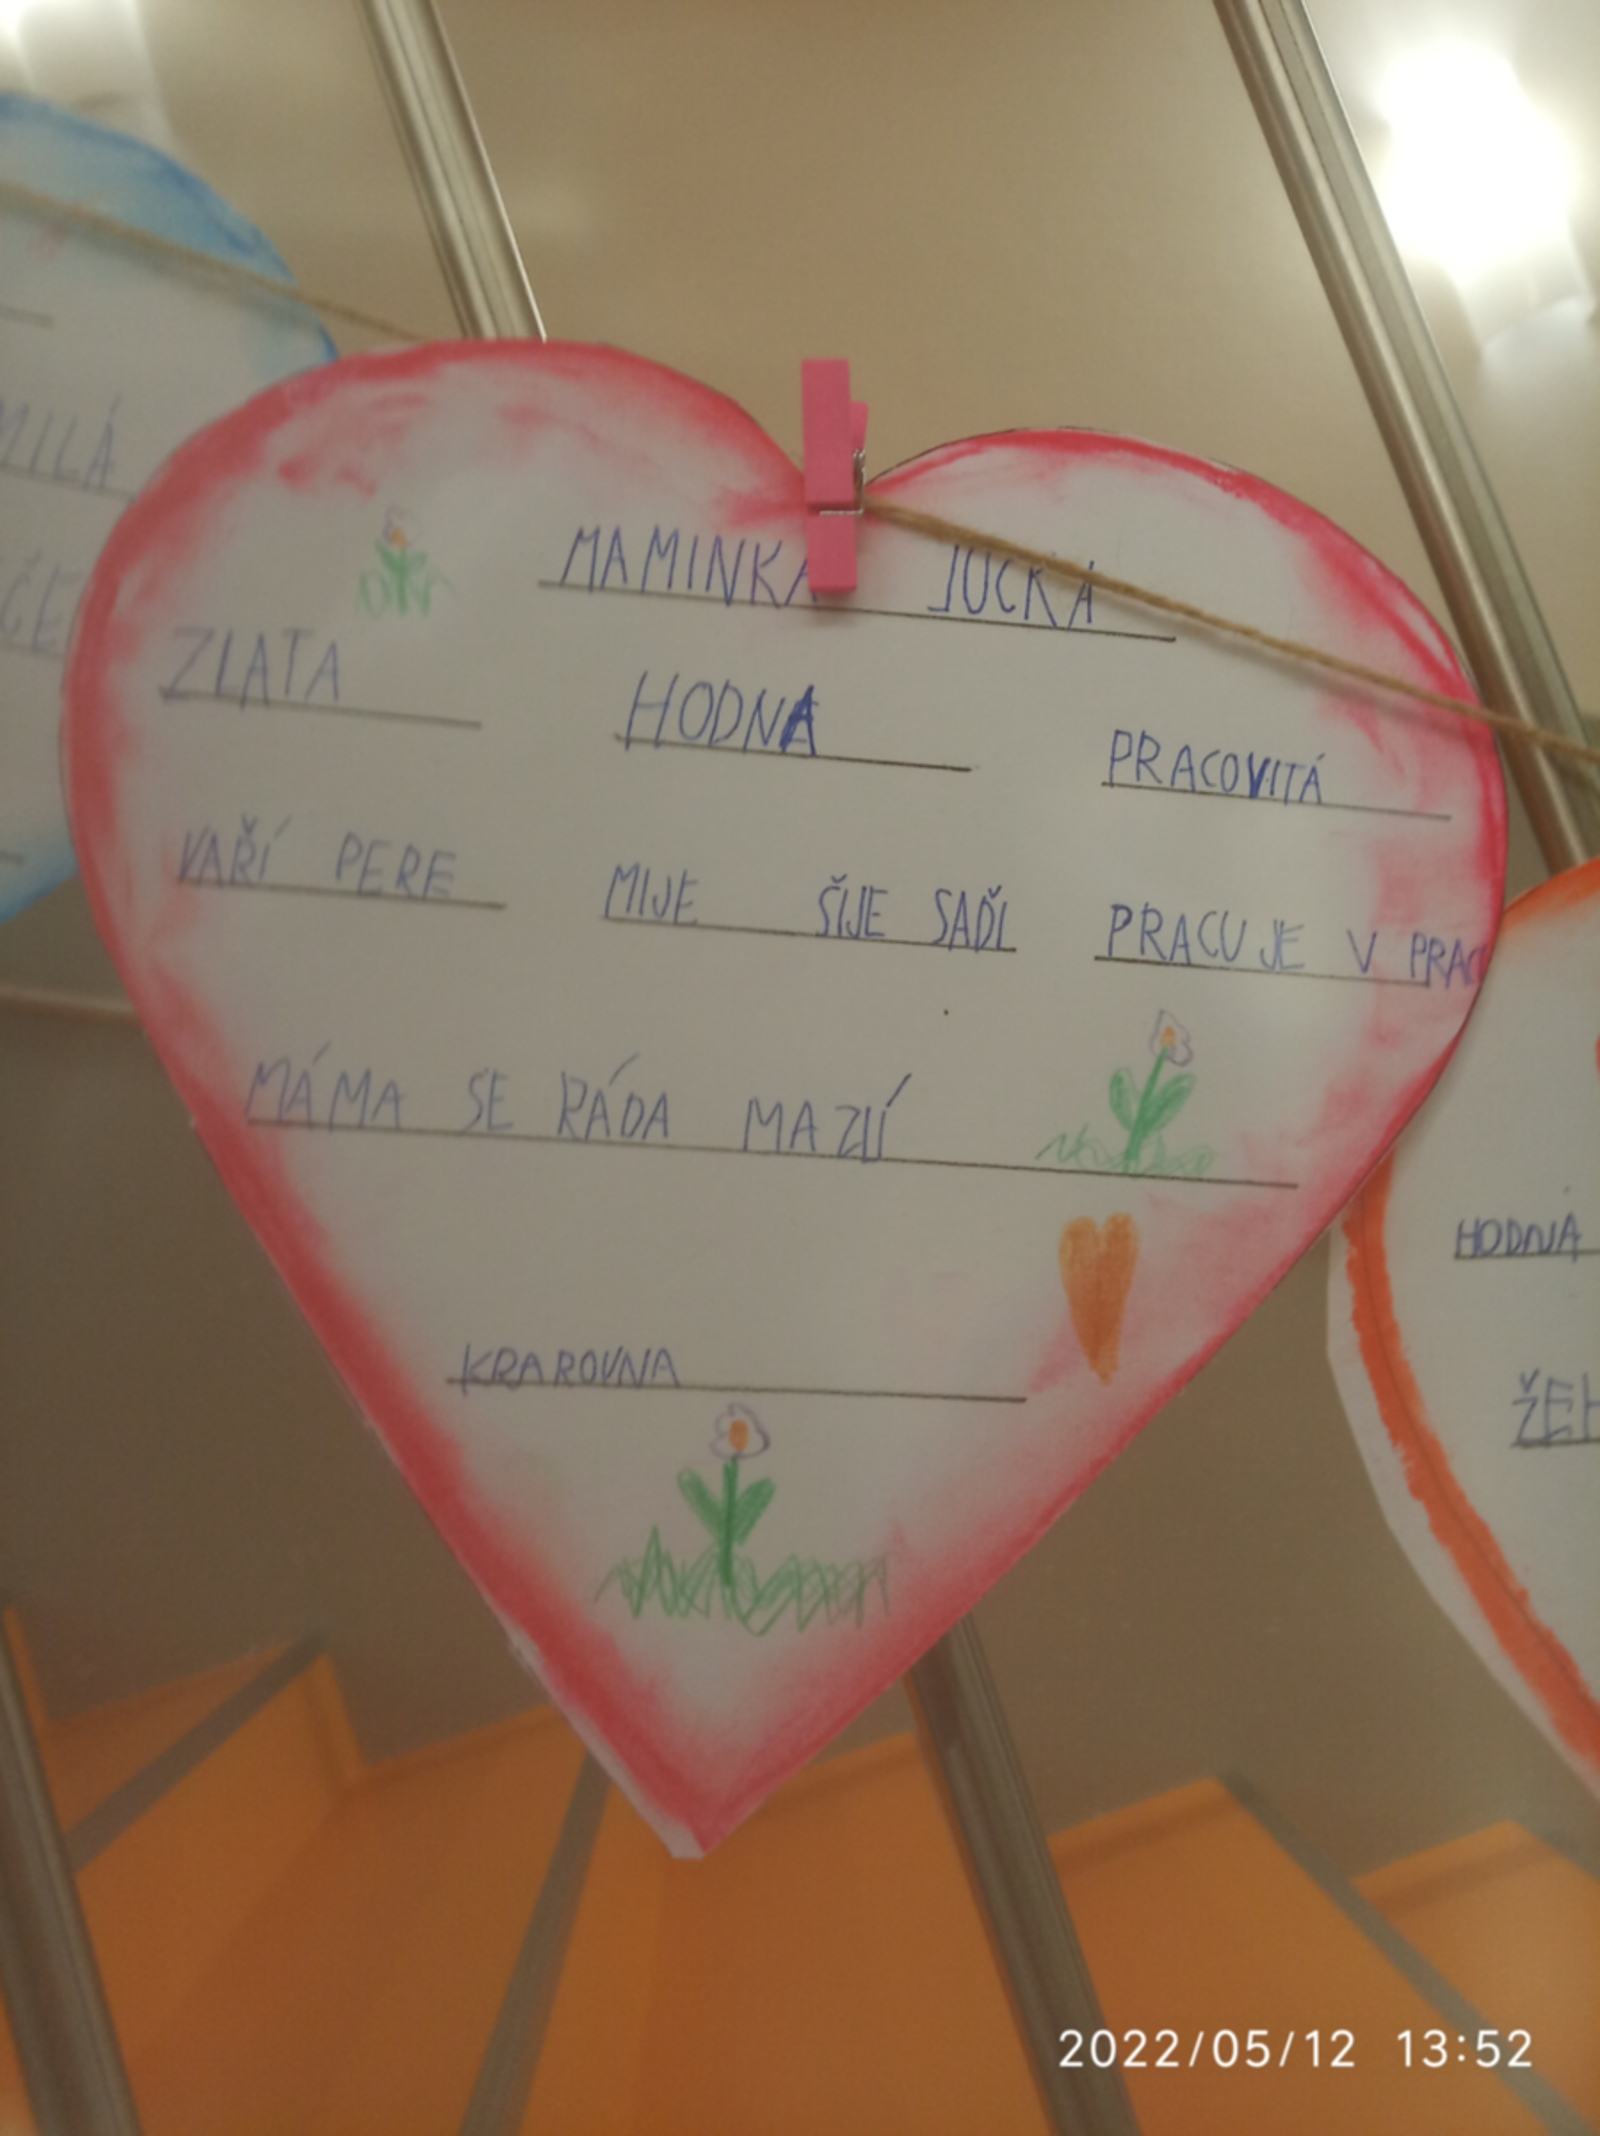 MAMINKA JUCKÁ
ZLATA HODNÁ PRACOVITÁ
VAŘÍ PERE MIJE ŠIJE SAĎÍ PRACUJE V PRAC
MÁMA SE RÁDA MAZLÍ
KRAROVNA
MILÁ
HODNÁ
2022/05/12 13:52